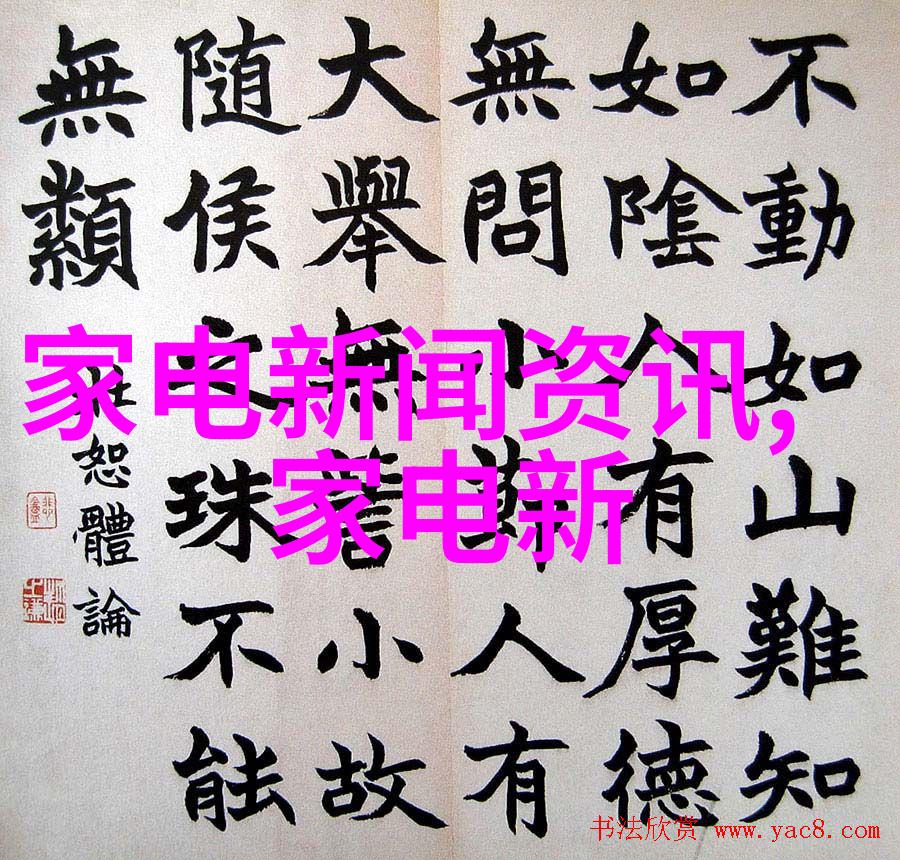 不動如山難知
如陰人有厚德
無問小人有
大舉無小故
隨侯之珠不能
無纇
杜恕體論
家电新闻资讯,
家电新
书法欣赏 www.yac8.com